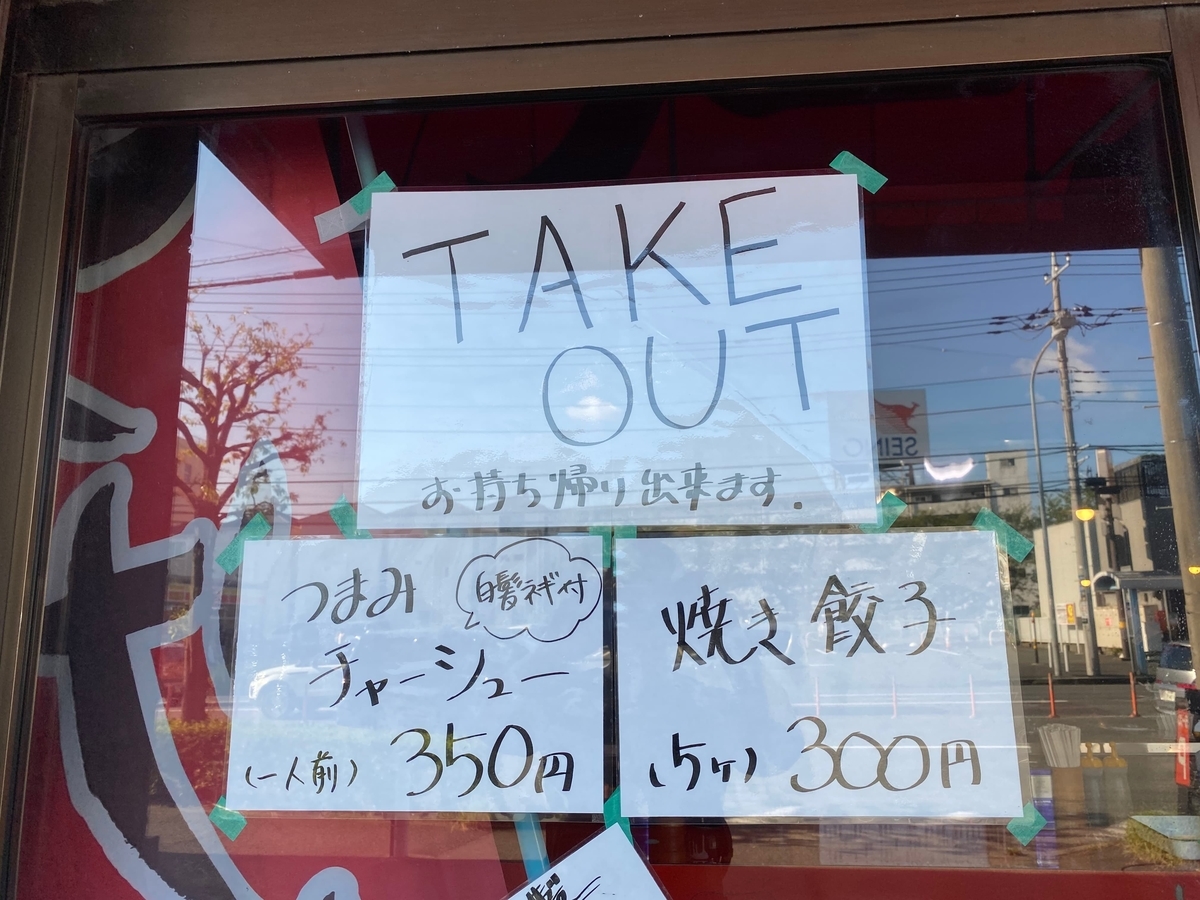 TAKE
OUT
お持ち帰り出来ます.
つまみ
白髪ネギ付
チャーシュー
(一人前) 350円
焼き餃子
(5ヶ) 300円
SEINO